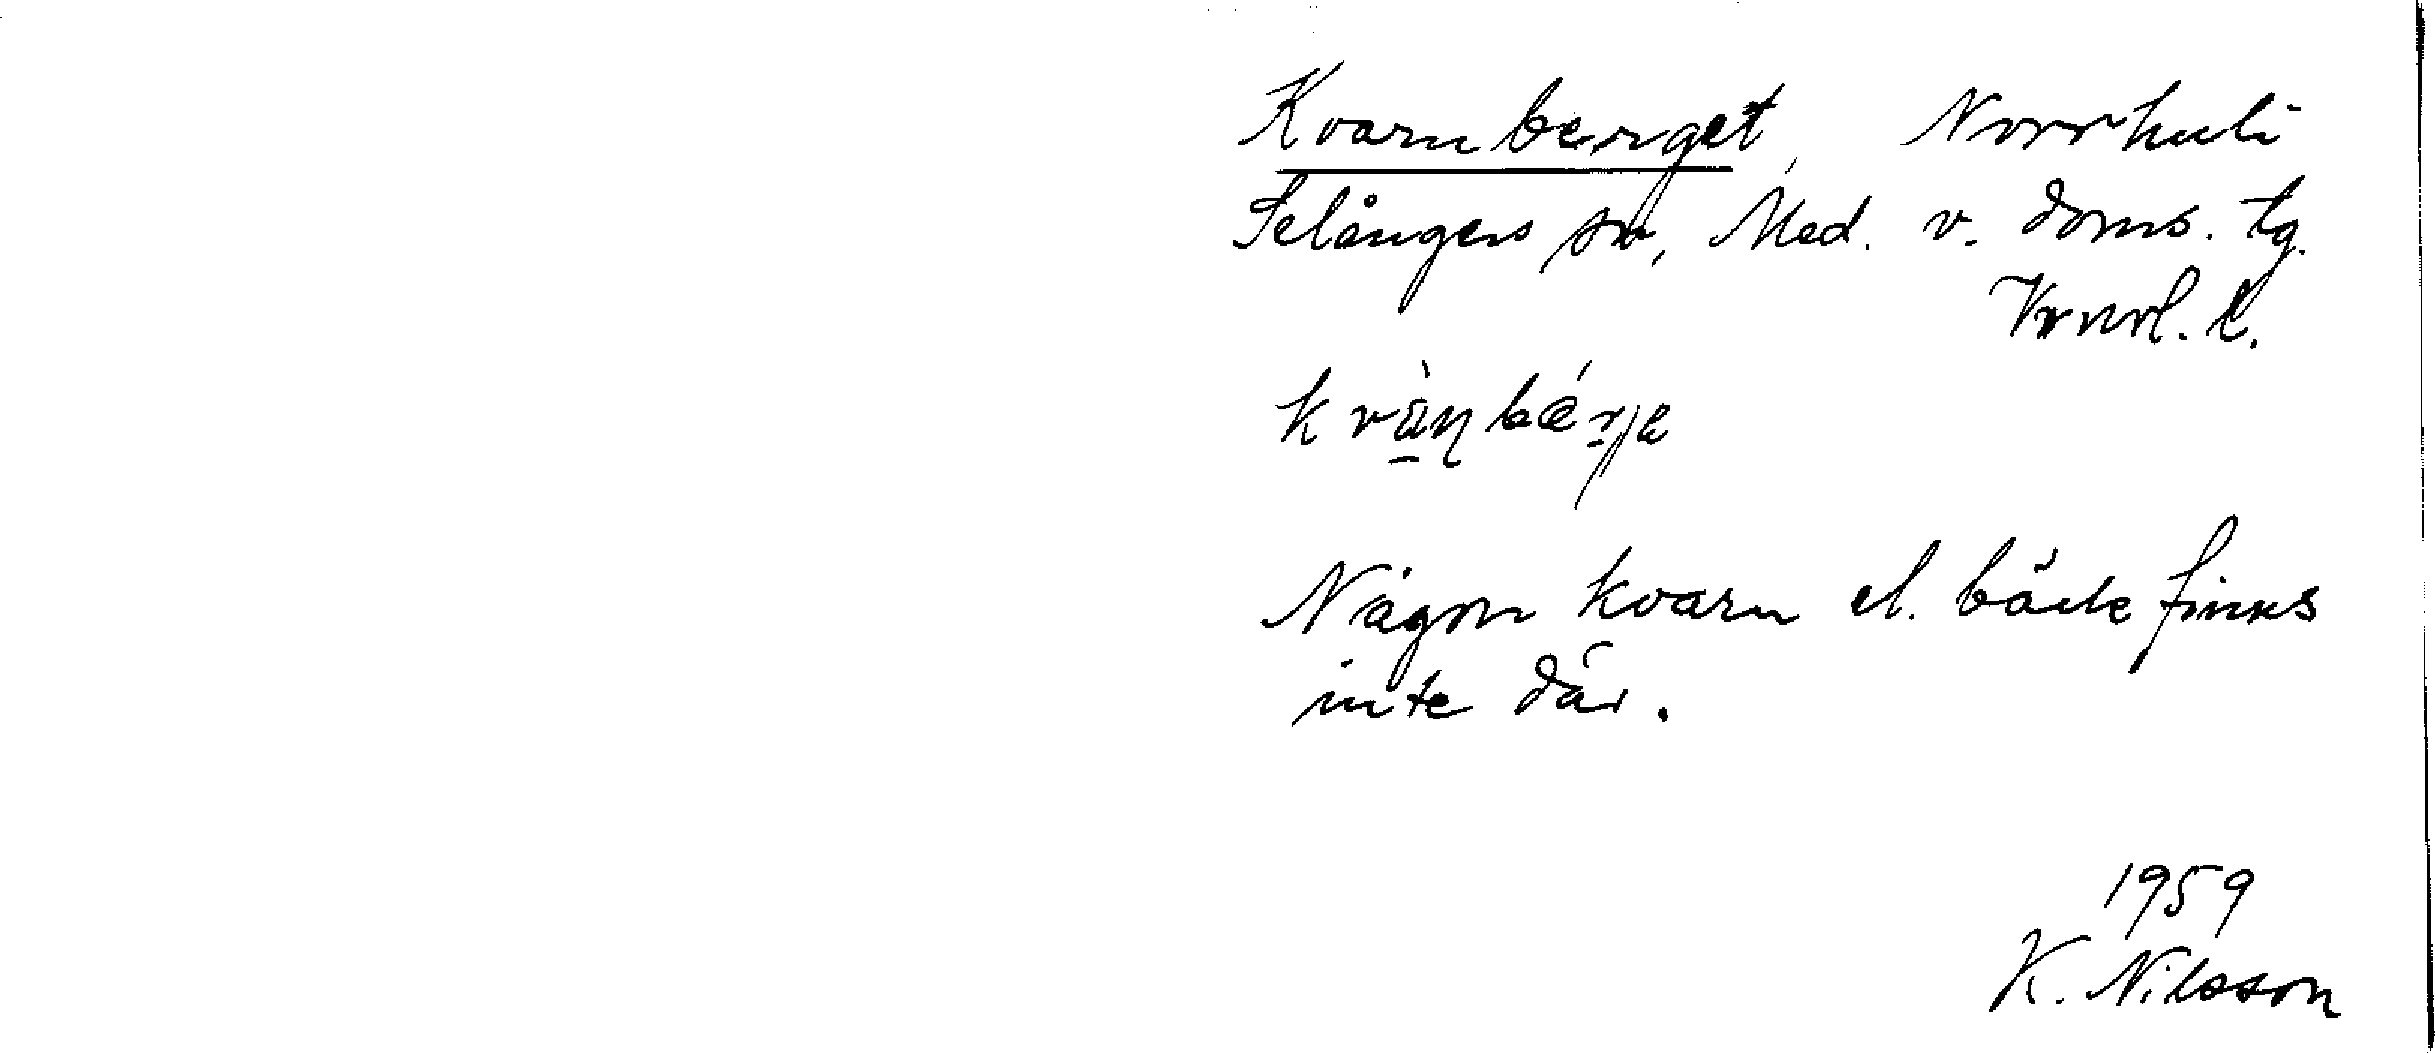 Kvarnberget, Norrhuli
Selångers sn, Med. v. doms. tg.
Vrnrl. l.
kvàṇbérje
Någon kvarn el. bäck finns
inte där.
1959
K. Nilsson